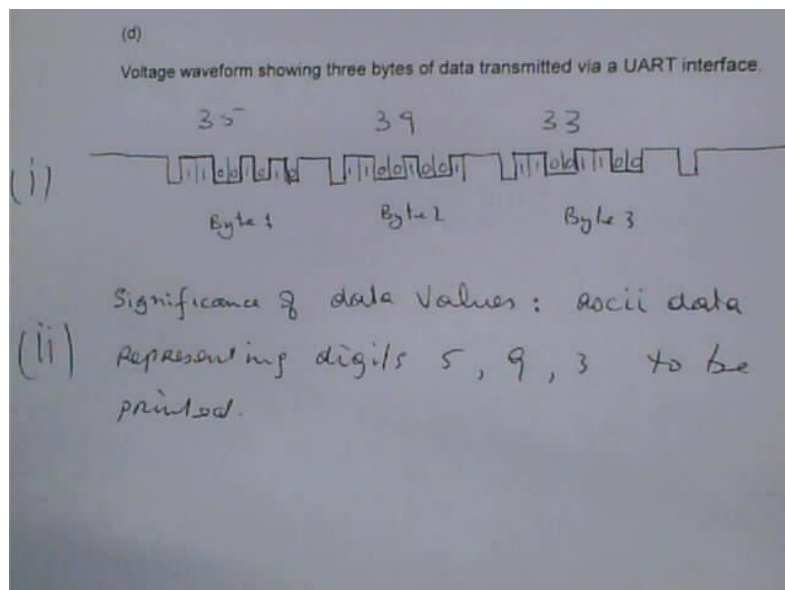 (d)
Voltage waveform showing three bytes of data transmitted via a UART interface.
35 39 33
(i)
Byte 1 Byte 2 Byte 3
Significance of data values: ascii data
(ii) representing digits 5, 9, 3 to be
printed.